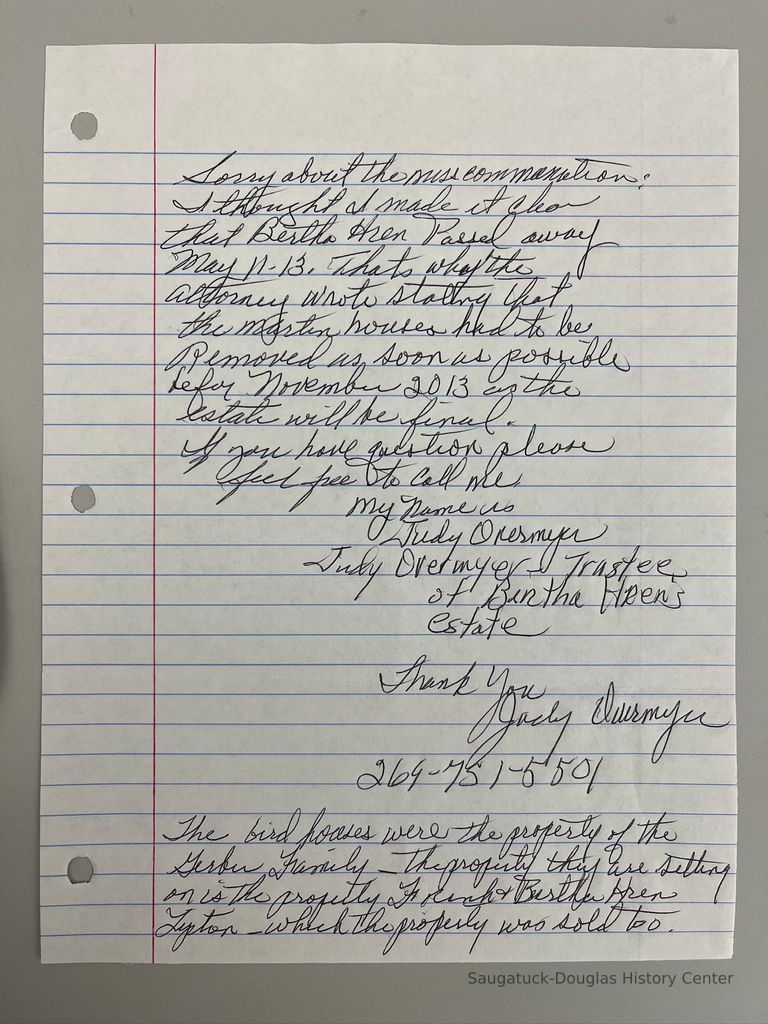 Sorry about the misscommunxation:
I thought I made it clear
that Bertha Hren Passed away
May 11-13. Thats why the
attorney wrote stating that
the martin houses had to be
Removed as soon as possible
befor November 2013 as the
estate will be final.
If you have question please
feel free to call me.
My Name is
Judy Overmyer
Judy Overmyer - Trustee
of Bertha Hren's
estate
Thank You
Judy Overmyer
269-751-5501
The bird houses were the property of the
Gerber Family - The property they are setting
on is the property Frank & Bertha Hren
- which the property was sold too.
Saugatuck-Douglas History Center